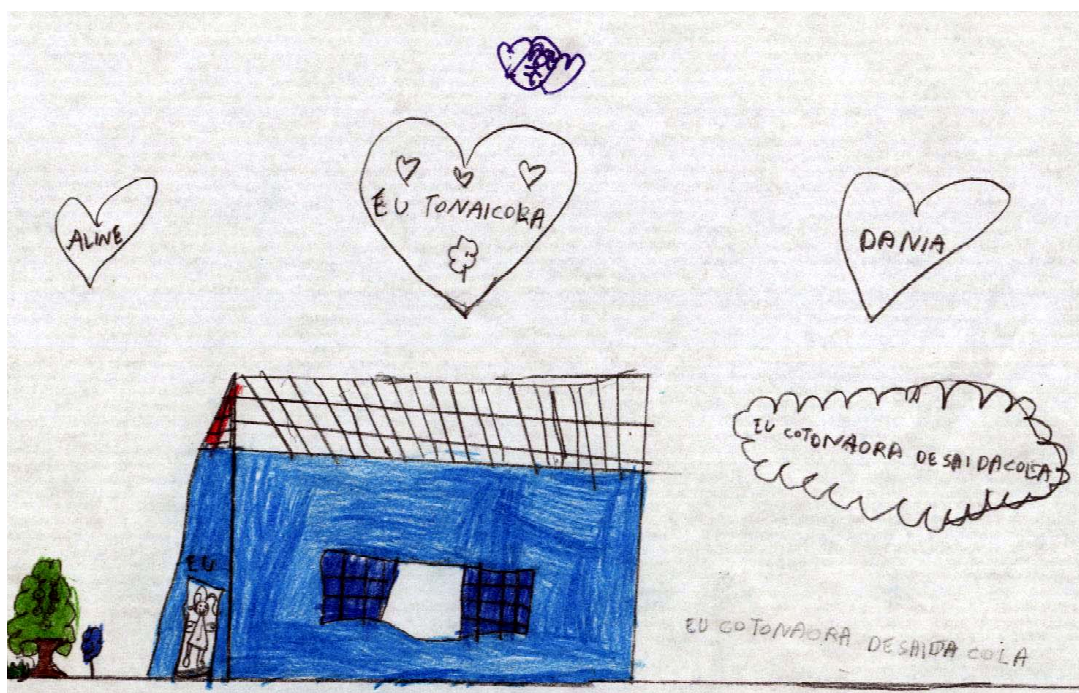 EU TONAICORA
ALINE
DANIA
EU COTONAORA DE SAIDACOLSA
EU
EU COTONAORA DE SAIDA COLA